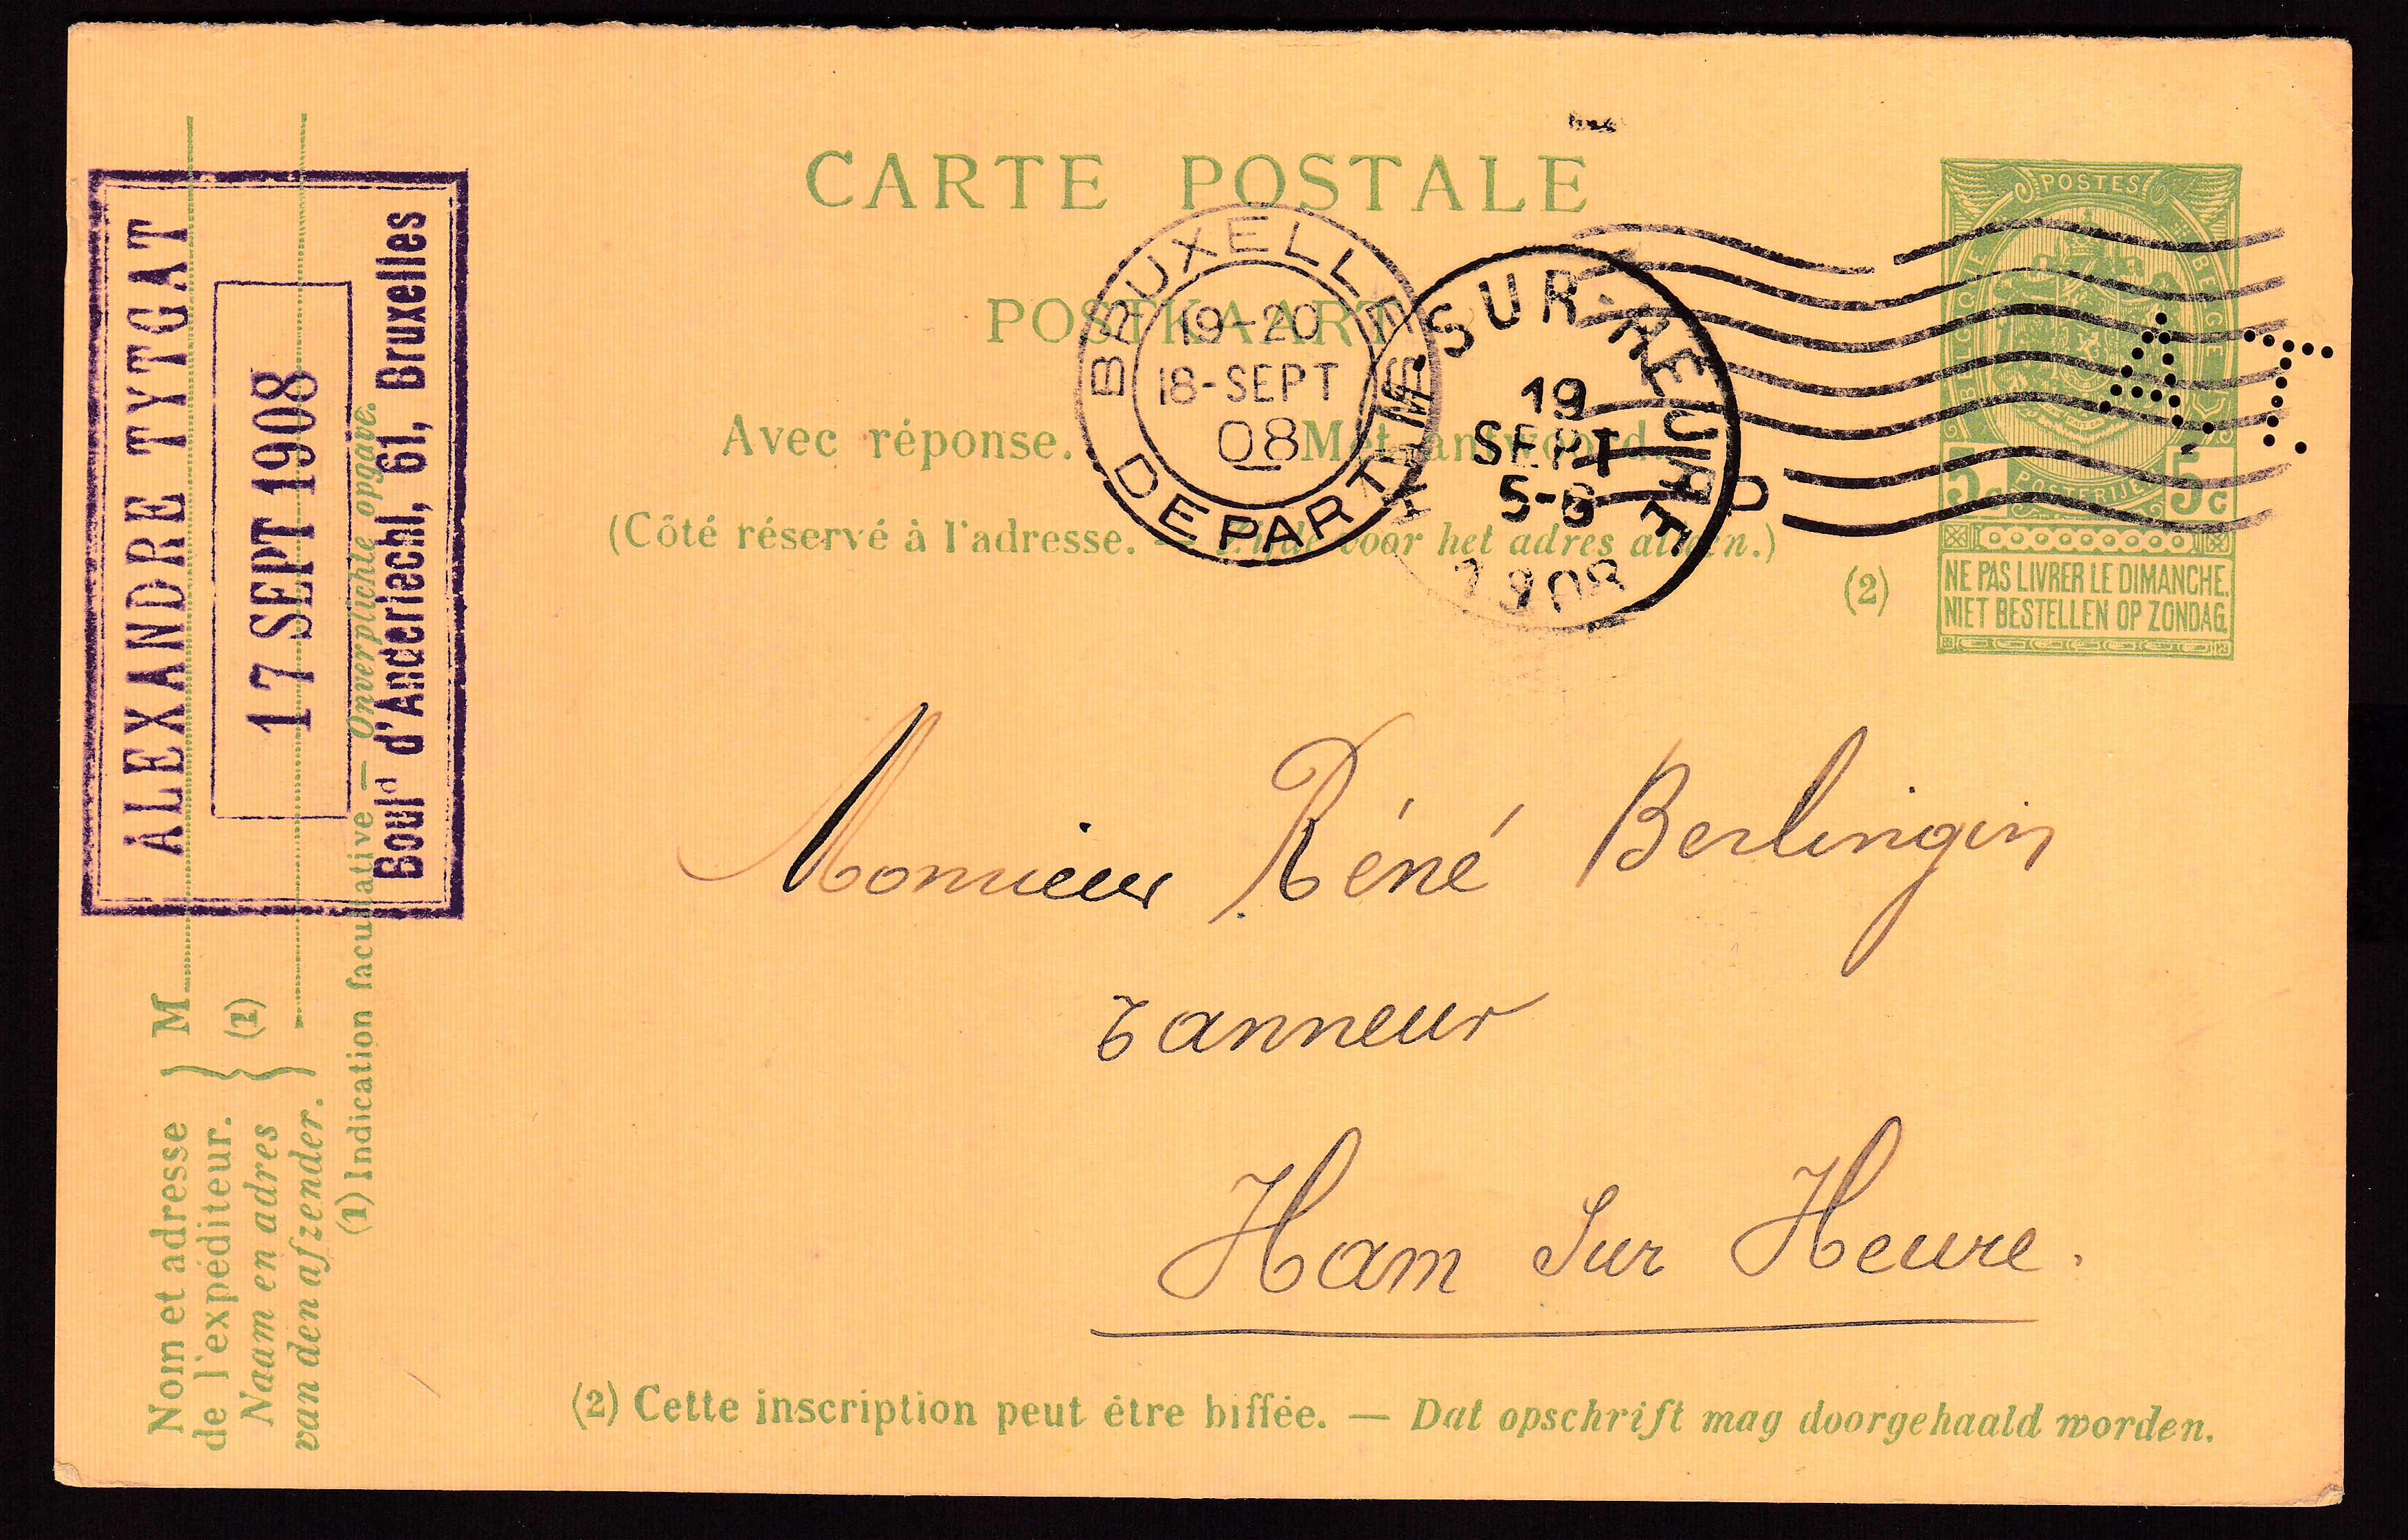 CARTE POSTALE
POSTKAART
Avec réponse. Met antwoord.
(Côté réservé à l'adresse. — Zijde voor het adres alleen.)
BRUXELLES
19-20
18-SEPT
08
DEPART
HAM-SUR-HEURE
19
SEPT
5-6
1908
POSTES
BELGIQUE
BELGIË
POSTERIJEN
5c 5c
A.T.
(2)
NE PAS LIVRER LE DIMANCHE.
NIET BESTELLEN OP ZONDAG.
ALEXANDRE TYTGAT
17 SEPT 1908
Bould d'Anderlecht, 61, Bruxelles
Nom et adresse
de l'expéditeur.
Naam en adres
van den afzender.
M
(1)
(1) Indication facultative — Onverplichte opgave.
Monsieur Réné Berlingin
Tanneur
Ham Sur Heure.
(2) Cette inscription peut être biffée. — Dat opschrift mag doorgehaald worden.